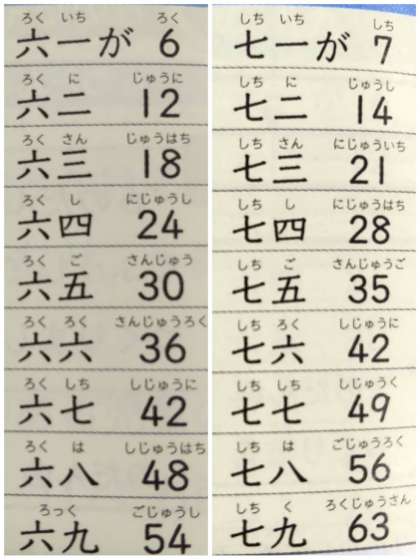 ろく いち ろく
六一が 6
ろく に じゅうに
六二 12
ろく さん じゅうはち
六三 18
ろく し にじゅうし
六四 24
ろく ご さんじゅう
六五 30
ろく ろく さんじゅうろく
六六 36
ろく しち しじゅうに
六七 42
ろく は しじゅうはち
六八 48
ろっく ごじゅうし
六九 54
しち いち しち
七一が 7
しち に じゅうし
七二 14
しち さん にじゅういち
七三 21
しち し にじゅうはち
七四 28
しち ご さんじゅうご
七五 35
しち ろく しじゅうに
七六 42
しち しち しじゅうく
七七 49
しち は ごじゅうろく
七八 56
しち く ろくじゅうさん
七九 63